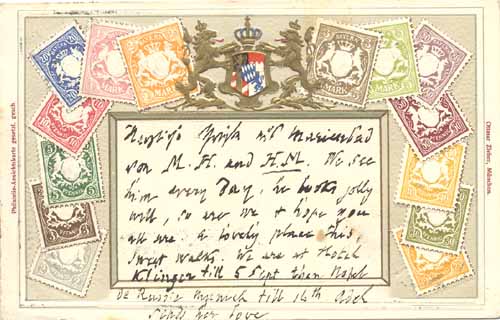 Philatelie-Ansichtskarte gesetzl. gesch.
Ottmar Zieher, München.
BAYERN
MARK
MARK
MARK
aus Marienbad
von M. H. and H.M. We see
him every Day, he looks jolly
well, so are we & hope you
all are. a lovely place this,
sweet walks. We are at Hotel
Klinger till 5 Sept then Hotel
de Russie Munich till 14th
sends her love